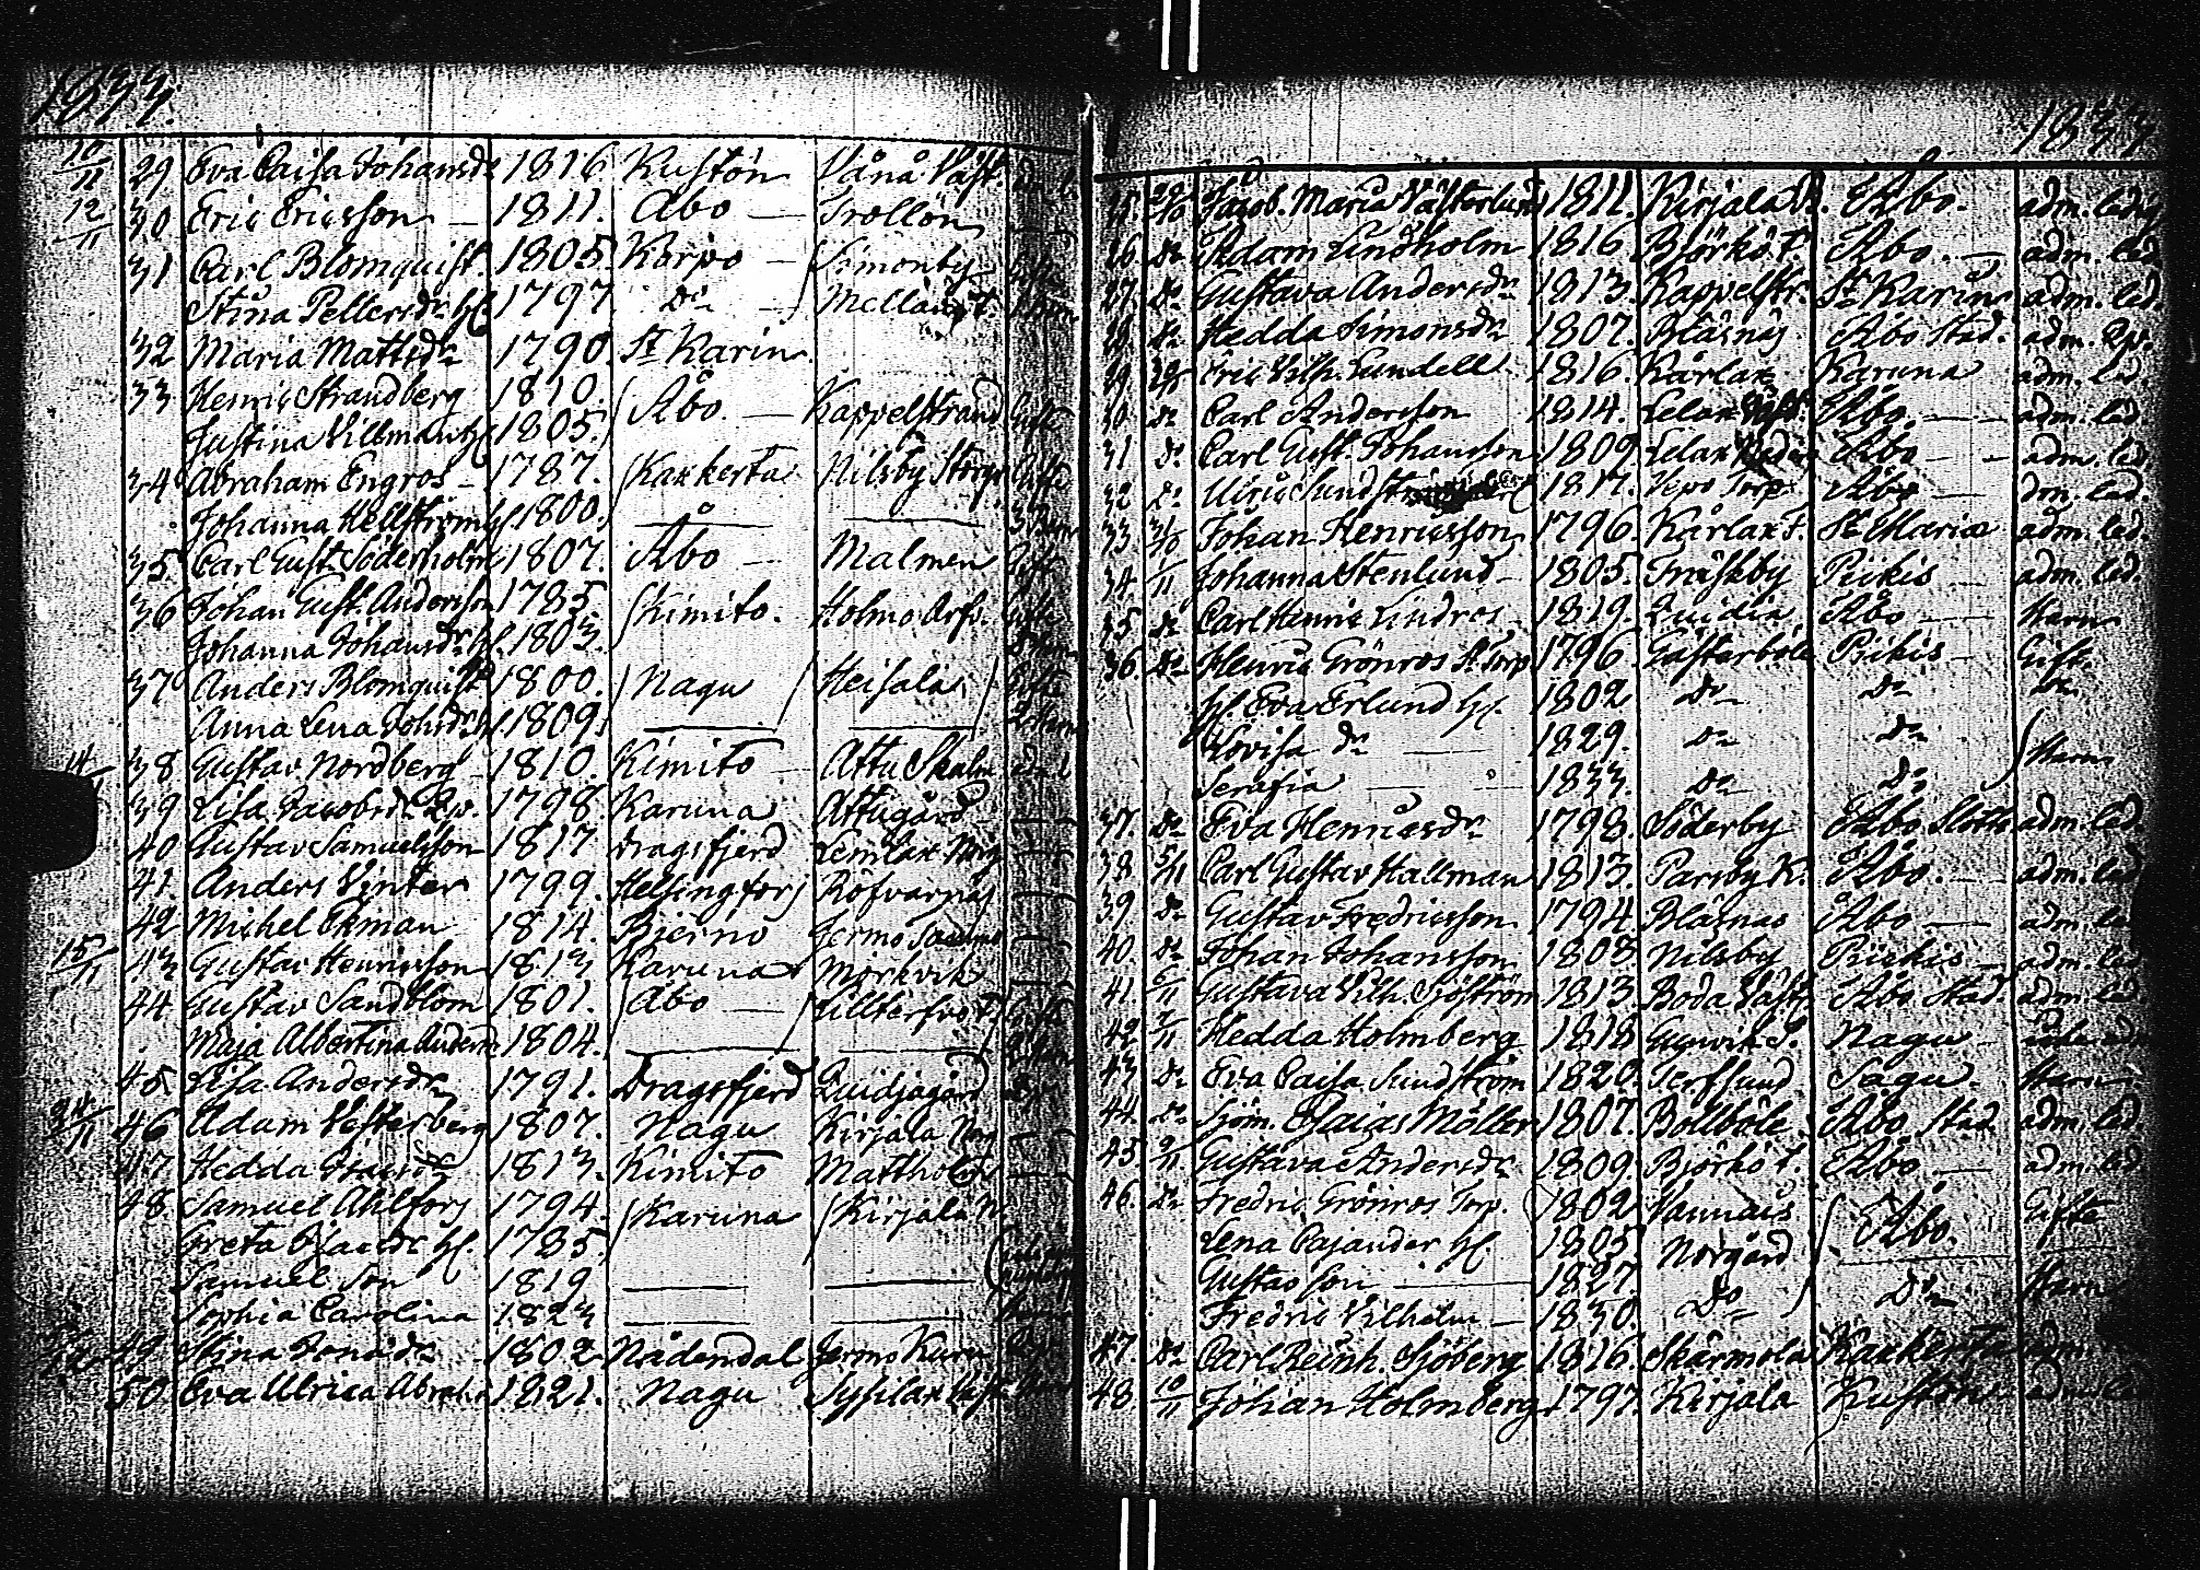 1833.
10/11 29 Eva Caisa Johansdr 1816 Kustön Vånå Väst.
12/11 30 Eric Ericsson — 1811. Åbo — Trollön
31 Carl Blomquist. 1805. Korpo — Simonby
Stina Pettersdr hu 1797 Do —
32 Maria Mattsdr 1790. St Karin
33 Henric Strandberg 1810. Åbo. — Kappelstrand Gifte
Justina Villman hu 1805.
34 Abraham Engros — 1787. Kakkerta Nilsby Storg. Gifte
Johanna Hellström hu 1800.
35. Carl Gust. Söderholm 1807. Åbo — Malmen Gift
36 Johan Gust. Andersson 1785. Kimito. Holmo Gifte
Johanna Johansdr hu. 1803.
37 Anders Blomquist 1800. Nagu Heisala Gifte
Anna Lena Johsdr hu 1809.
14/11 38 Gustav Nordberg — 1810. Kimito — Attu
39 Lisa Jacobsdr 1798. Karuna Attugård
40 Gustav Samuelsson 1817 Dragsfjerd Lemlax Norg
41. Anders Vinter 1799. Helsingfors Röfvarnäs
42 Michel Ekman 1814. Bjerno Jermo
15/11 43 Gustav Henricsson 1813 Karuna Mörkvik
44 Gustav Sandblom 1801. Åbo — Gifte
Maja Albertina Andersd 1804.
45 Lisa Andersdr 1791. Dragsfjerd Quidjagård
24/11 46 Adam Vesterberg 1807. Nagu Kirjala Norg
47. Hedda 1813. Kimito Mattholm
48. Samuel Ahlfors 1794. Karuna Kirjala N.
Greta hu. 1785.
Samuel Son 1819
Sophia Carolina 1823
49 Stina Jonasdr 1802 Nådendal Jermo
50 Eva Ulrica Abrah. 1821. Nagu Sysilax
1833
25. 29/10 Jacob. Maria Västerlund 1811. Kirjala Åbo. adm. ledig
26. Do Adam Lindholm 1816 Björkö T. Åbo. — adm. led.
27. Do Gustava Andersdr 1813. Kappelstr. St Karins adm. led.
28. Do Hedda Simonsdr 1807. Bläsnäs Åbo Stad. adm.
29. Eric Vilh. Lundell 1816. Kårlax Karuna adm. led.
30. Do Carl Andersson 1814. Lelax Åbo. — adm. led.
31 Do Carl Gust. Johansson 1809. Lelax Åbo — adm. led.
32 Do Ulric 1817. Vepo Torp Åbo — led.
33 31/10 Johan Henricsson 1796. Kårlax T. St Mariæ adm. led.
34. 1/11 Johanna Stenlund — 1805. Fräskby Pickis — adm. led.
35 Do Carl Henric Lindros — 1819. Quidia Åbo — Barn
36. Do Henric Grönros St. Torp. 1796. Gästerböle Pickis — Gift.
hu. Eva Erlund hu. 1802 Do Do
Lovisa Dr — 1829. Do Do Barn
Serafia — 1833. Do Do
37. Do Eva Henricsdr 1798. Söderby Åbo Slotts adm. led.
38. 5/11 Carl Gustav Hallman 1813. Parsby K. Åbo. — adm. led
39. Do Gustav Fredricsson 1794 Bläsnas Åbo — adm. led
40. Do Johan Johansson 1803 Nilsby Pickis — adm. led
41. 6/11 Gustava Vilh. Sjöström 1813. Boda Västr. Åbo Stad. adm. led.
42. 7/11 Hedda Holmberg 1818 Nagu —
43. Do Eva Caisa Sundström 1820. Terfsund Sagu. Barn
44. Do Sjöm. Esaias Möller 1807. Bollböle Åbo Stad adm. led
45. 9/11 Gustava Andersdr 1809. Björkö T. Åbo — adm. led
46. Do Fredric Grönros Torp. 1802 Vannais Åbo. Gifte
Lena Cajander hu. 1805 Norgård
Gustav Son — 1827. Do Do Barn
Fredric Vilhelm — 1830.
47. Do Carl Reinh. Sjöberg 1816. Skärmola Kakkerta adm.
48. 10/11 Johan Holmberg 1797. Kirjala Kustön adm. led